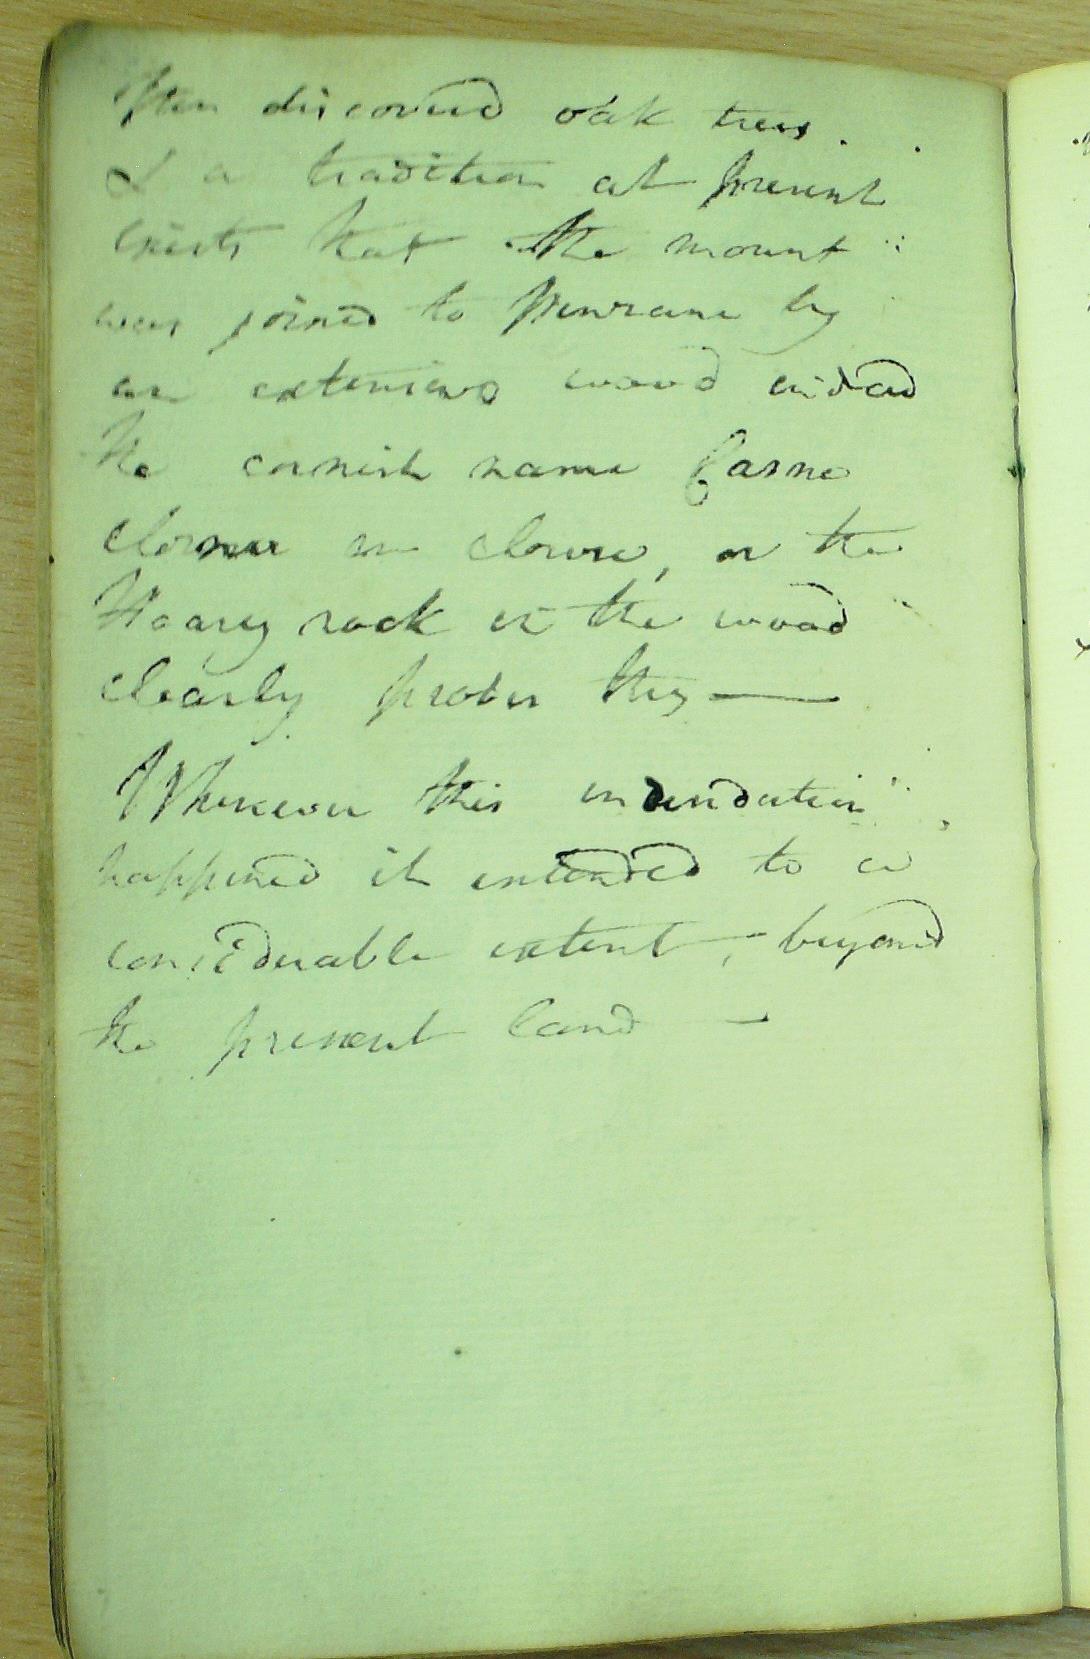 often discovered oak trees.
& a tradition at present
exists that the mount
was joined to Penzance by
an extensive wood indeed
the cornish name Carne
clowse in clowse, or the
Hoary rock in the wood
clearly proves this —
Whenever this inundation
happened it extended to a
considerable extent, beyond
the present land —